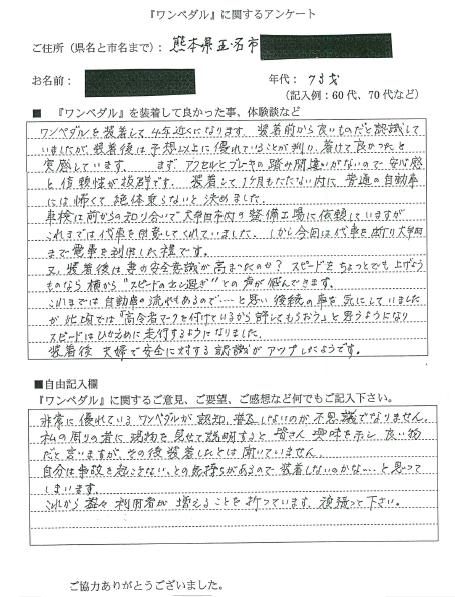 『ワンペダル』に関するアンケート
ご住所（県名と市名まで）：熊本県玉名市
お名前：　年代：73才
（記入例：60代、70代など）
■ 『ワンペダル』を装着して良かった事、体験談など
ワンペダルを装着して4年近くになります。装着前から良いものだと認識して
いましたが、装着後は予想以上に優れていることが判り、着けて良かったと
実感しています。 まず アクセルとブレーキの踏み間違いがないので安心感
と信頼性が抜群です。 装着して1ヶ月もたたない内に普通の自動車
には怖くて絶体乗らないと決めました。
車検は前からの知り合いで大牟田市内の整備工場に依頼していますが
これまでは代車を用意してくれていました。しかし今回は代車を断り大牟田
まで電車を利用した程です。
又、装着後は妻の安全意識が高まったのか？ スピードをちょっとでも上げよう
ものなら横から"スピードの出し過ぎ"との声が飛んできます。
これまでは自動車の流れもあるので…と思い後続の車を気にしていました
が、此頃では「高令者マークを付けているから許してもらおう」と思うようになり
スピードはひかえめに走行するようになりました。
装着後 夫婦で安全に対する認識がアップしたようです。
■自由記入欄
『ワンペダル』に関するご意見、ご要望、ご感想など何でもご記入下さい。
非常に優れているワンペダルが認知、普及しないのが不思議でなりません。
私の周りの者に現物を見せて説明すると皆さん興味を示し良い物
だと言いますが、その後装着したとは聞いていません。
自分は事故を起こさない、との気持ちがあるので装着しないのかな…と思って
しまいます。
これから益々利用者が増えることを祈っています。頑張って下さい。
ご協力ありがとうございました。